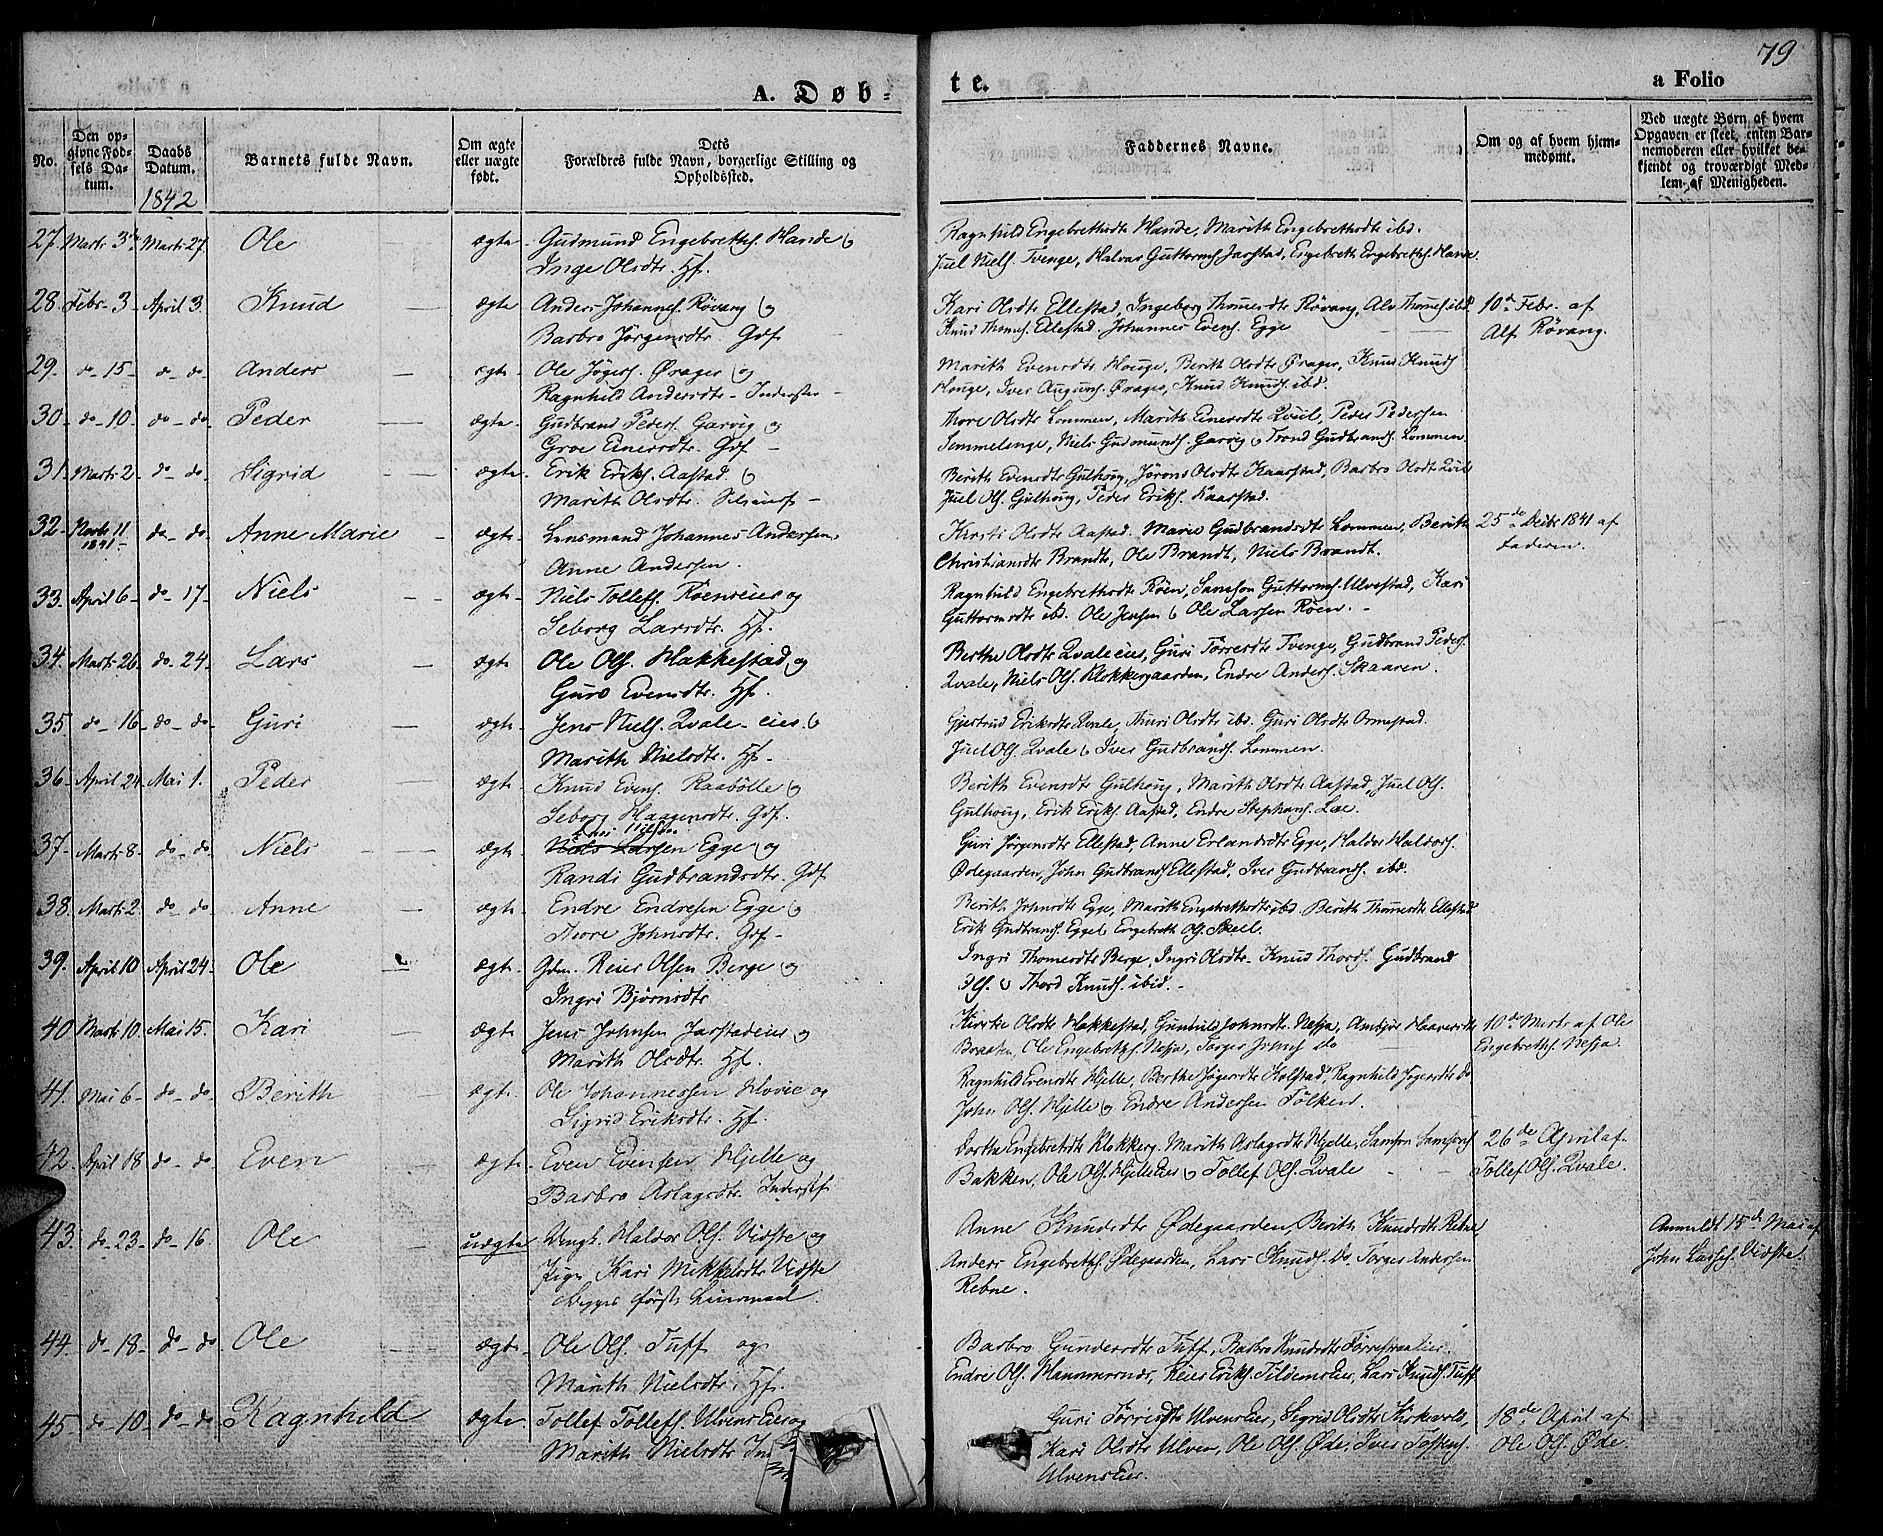 79
A. Døb-
te.
a Folio
No.
Den op-
givne Fød-
sels Da-
tum.
Daabs
Datum.
1842
Barnets fulde Navn.
Om ægte
eller uægte
født.
Dets
Forældres fulde Navn, borgerlige Stilling og
Opholdssted.
Faddernes Navne.
Om og af hvem hjem-
medømt.
Ved uægte Børn af hvem
Opgaven er skeet, enten Bar-
nemoderen eller hvilket be-
kjendt og troværdigt Med-
lem af Menigheden.
27. Marts 3 Marts 27. Ole ægte Gudmund Engebreths. Hande og
Inge Olsdtr. Hf.
Ragnhild Engebrethsdtr Hande, Marith Engebrethsdtr ibd.
Juel Niels. Tvenge, Halvar Guttorms. Jarstad, Engebreth Engebreths. Hande
28. Febr. 3 April 3. Knud ægte Anders Johannes. Røvang og
Barbro Jörgensdtr. Gdf.
Kari Olsdtr Ellestad, Ingeborg Thomesdtr Røvang, Alv Thomes. ibd
Knud Thomes. Ellestad. Johannes Evens. Egge
10de Febr. af
Alf Røvang.
29. do 15 do do Anders ægte Ole Jøgers. Ørager og
Ragnhild Andersdtr. Inderster
Marith Evensdtr Houge, Berith Olsdtr Ørager, Knud Knuds.
Houge, Iver Auguns. Ørager, Knud Knuds. ibd.
30 do 10. do do Peder ægte Gudbrand Peders. Garvig og
Groe Einersdtr. Gdf
Thore Olsdtr Lommen, Marith Einersdtr Qvil, Peder Pedersen
Semmelenge, Niels Gudmunds. Garvig og Trond Gudbrands. Lommen
31. Marts 2 do do Sigrid ægte Erik Eriks. Aastad og
Marith Olsdtr.
Berith Evensdtr Gulhoug, Jørond Olsdtr Kaarstad, Barbro Olsdtr Qvil
Juel Ols. Gulhoug, Peder Eriks. Kaarstad.
32 11 1841 do do Anne Marie ægte Lensmand Johannes Andersen,
Anne Andersen.
Kirsti Olsdtr Aastad. Marie Gudbrandsdtr Lommen, Berith
Christiansdtr Brandt, Ole Brandt, Niels Brandt.
25de Decbr 1841 af
Faderen.
33. April 6 do 17 Niels ægte Niels Tollefs. Röenseie og
Seborg Larsdtr. Hf.
Ragnhild Engebrethsdtr Röen, Samson Guttorms. Ulvestad, Kari
Guttormsdtr ibd. Ole Jensen og Ole Larsen Röen.
34. Marts 26 do 24. Lars ægte Ole Ols. Hakkestad og
Guro Evensdtr. Hf.
Berthe Olsdtr Qvaleeie, Guri Törresdtr Tvenge, Gudbrand Peders.
Qvale, Niels Ols. Klokkergaarden, Endre Anders. Skaaren.
35 do 16 do do Guri ægte Jens Niels. Qvale-eie. og
Marith Nielsdtr. Hf.
Gjertrud Eriksdtr Qvale, Thuri Olsdtr ibd. Guri Olsdtr Ormstad.
Juel Ols. Qvale og Iver Gudbrands. Lommen.
36. April 24 Mai 1. Peder ægte Knud Evens. Raabölle og
Seborg Haagensdtr. Gdf.
Berith Evensdtr Gulhoug, Marith Olsdtr Aastad, Juel Ols.
Gulhoug, Erik Eriks. Aastad, Endre Stephans. Lae.
37 Marts 8 do do Niels ægte Niels Larsen Egge og
Randi Gudbrandsdtr. Gdf.
Guri Jörgensdtr Ellestad, Anne Erlandsdtr Egge, Haldor Haldors.
Ødegaarden, John Gudbrands. Ellestad, Iver Gudbrands. ibd.
38. Marts 2. do do Anne ægte Endre Endresen Egge og
Thore Johnsdtr. Gdf.
Berith Johnsdtr Egge, Marith Engebrethsdtr ibd. Berith Thomesdtr Ellestad
Erik Gudbrands. Egge, Engebreth Ols. Skeel.
39. April 10 April 24 Ole ægte Gdm. Reier Olsen Berge og
Ingri Björnsdtr
Ingri Thomesdtr Berge, Ingri Olsdtr. Knud Thords. Gudbrand
Ols. og Thord Knuds. ibid.
40 Marts 10. Mai 15. Kari ægte Jens Johnsen Jarstadeie og
Marith Olsdtr. Hf.
Kirstie Olsdtr Hakkestad, Gunhild Johnsdtr Nesja,
Braaten, Ole Engebreths. Nesja, Torger Johns. do
10de Marts af Ole
Engebreths. Nesja.
41. Mai 6 do do Berith ægte Ole Johannessen Hovie og
Sigrid Eriksdtr. Hf.
Ragnhild Evensdtr Hjelle, Berthe Jøgersdtr Kolstad, Ragnhild Jøgersdtr do
John Ols. Hjelle og Endre Andersen Tölken.
42. April 18 do do Even ægte Even Evensen Hjelle og
Barbro Aslagsdtr. Inderstf
Dorthe Engebrethsdtr Klokkerg. Marith Aslagsdtr Hjelle, Samson Samsons.
Bakken, Ole Ols. Hjelleeie og Tollef Ols. Qvale
26de April af
Tollef Ols. Qvale.
43. do 23 do 16. Ole uægte Ungk. Haldor Ols. Vidste og
Pige Kari Mikkelsdtr Vidste
Begges første Leiermaal.
Anne Knudsdtr Ødegaarden, Berith Knudsdtr Rebne,
Anders Engebreths. Ødegaarden, Lars Knuds. do. Torger Andersen
Rebne.
Anmeldt 15de Mai af
John Lasses. Vidste.
44. do 18 do do Ole ægte Ole Ols. Tuff og
Marith Nielsdtr. Hf.
Barbro Gundersdtr Tuff, Barbro Knudsdtr
Endre Ols. Reier Eriks. Lars Knuds. Tuff
45 do 10 do do Ragnhild ægte Tollef Tollefs. Ulvenseie og
Marith Nielsdtr.
Guri Törresdtr Ulvenseie, Sigrid Olsdtr Kirkevold,
Kari Olsdtr Ulven, Ole Ols. Øde, Iver Tostens.
Ulvenseie.
18de April af
Ole Ols. Øde.